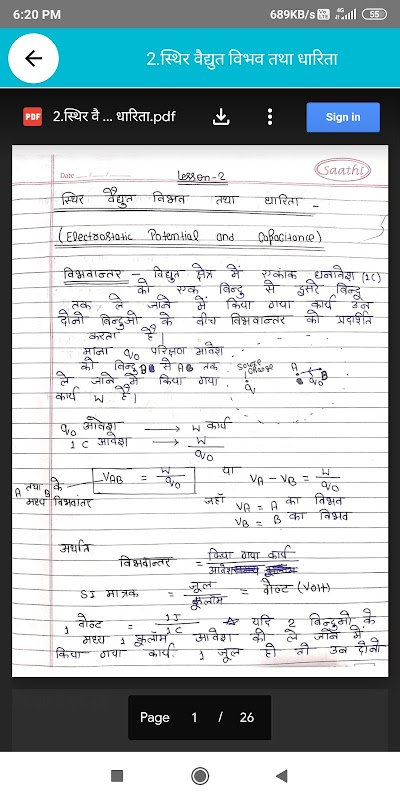 6:20 PM
689KB/s 4G 55
2.स्थिर वैद्युत विभव तथा धारिता
PDF 2.स्थिर वै ... धारिता.pdf Sign in
Date
Saathi
Lesson-2
स्थिर वैद्युत विभव तथा धारिता -
(Electrostatic Potential and Capacitance)
विभवान्तर - विद्युत क्षेत्र में एकांक धनावेश (1C)
को एक बिन्दु से दुसरे बिन्दु
तक ले जाने में किया गया कार्य उन
दोनो बिन्दुओ के बीच विभवान्तर को प्रदर्शित
करता है।
माना q₀ परिक्षण आवेश
को बिन्दु B से A तक
ले जाने में किया गया
कार्य W है।
Source charge
q
A B
q₀
q₀ आवेश → W कार्य
1C आवेश → W/q₀
A तथा B के मध्य विभवांतर
VAB = W/q₀ या VA - VB = W/q₀
जहाँ VA = A का विभव
VB = B का विभव
अर्थात
विभवान्तर = किया गया कार्य / आवेश
SI मात्रक = जूल / कूलॉम = वोल्ट (Volt)
1 वोल्ट = 1J / 1C ⇒ यदि 2 बिन्दुओ के
मध्य 1 कूलॉम आवेश को ले जाने में
किया गया कार्य 1 जूल हो तो उन दोनो
Page 1 / 26